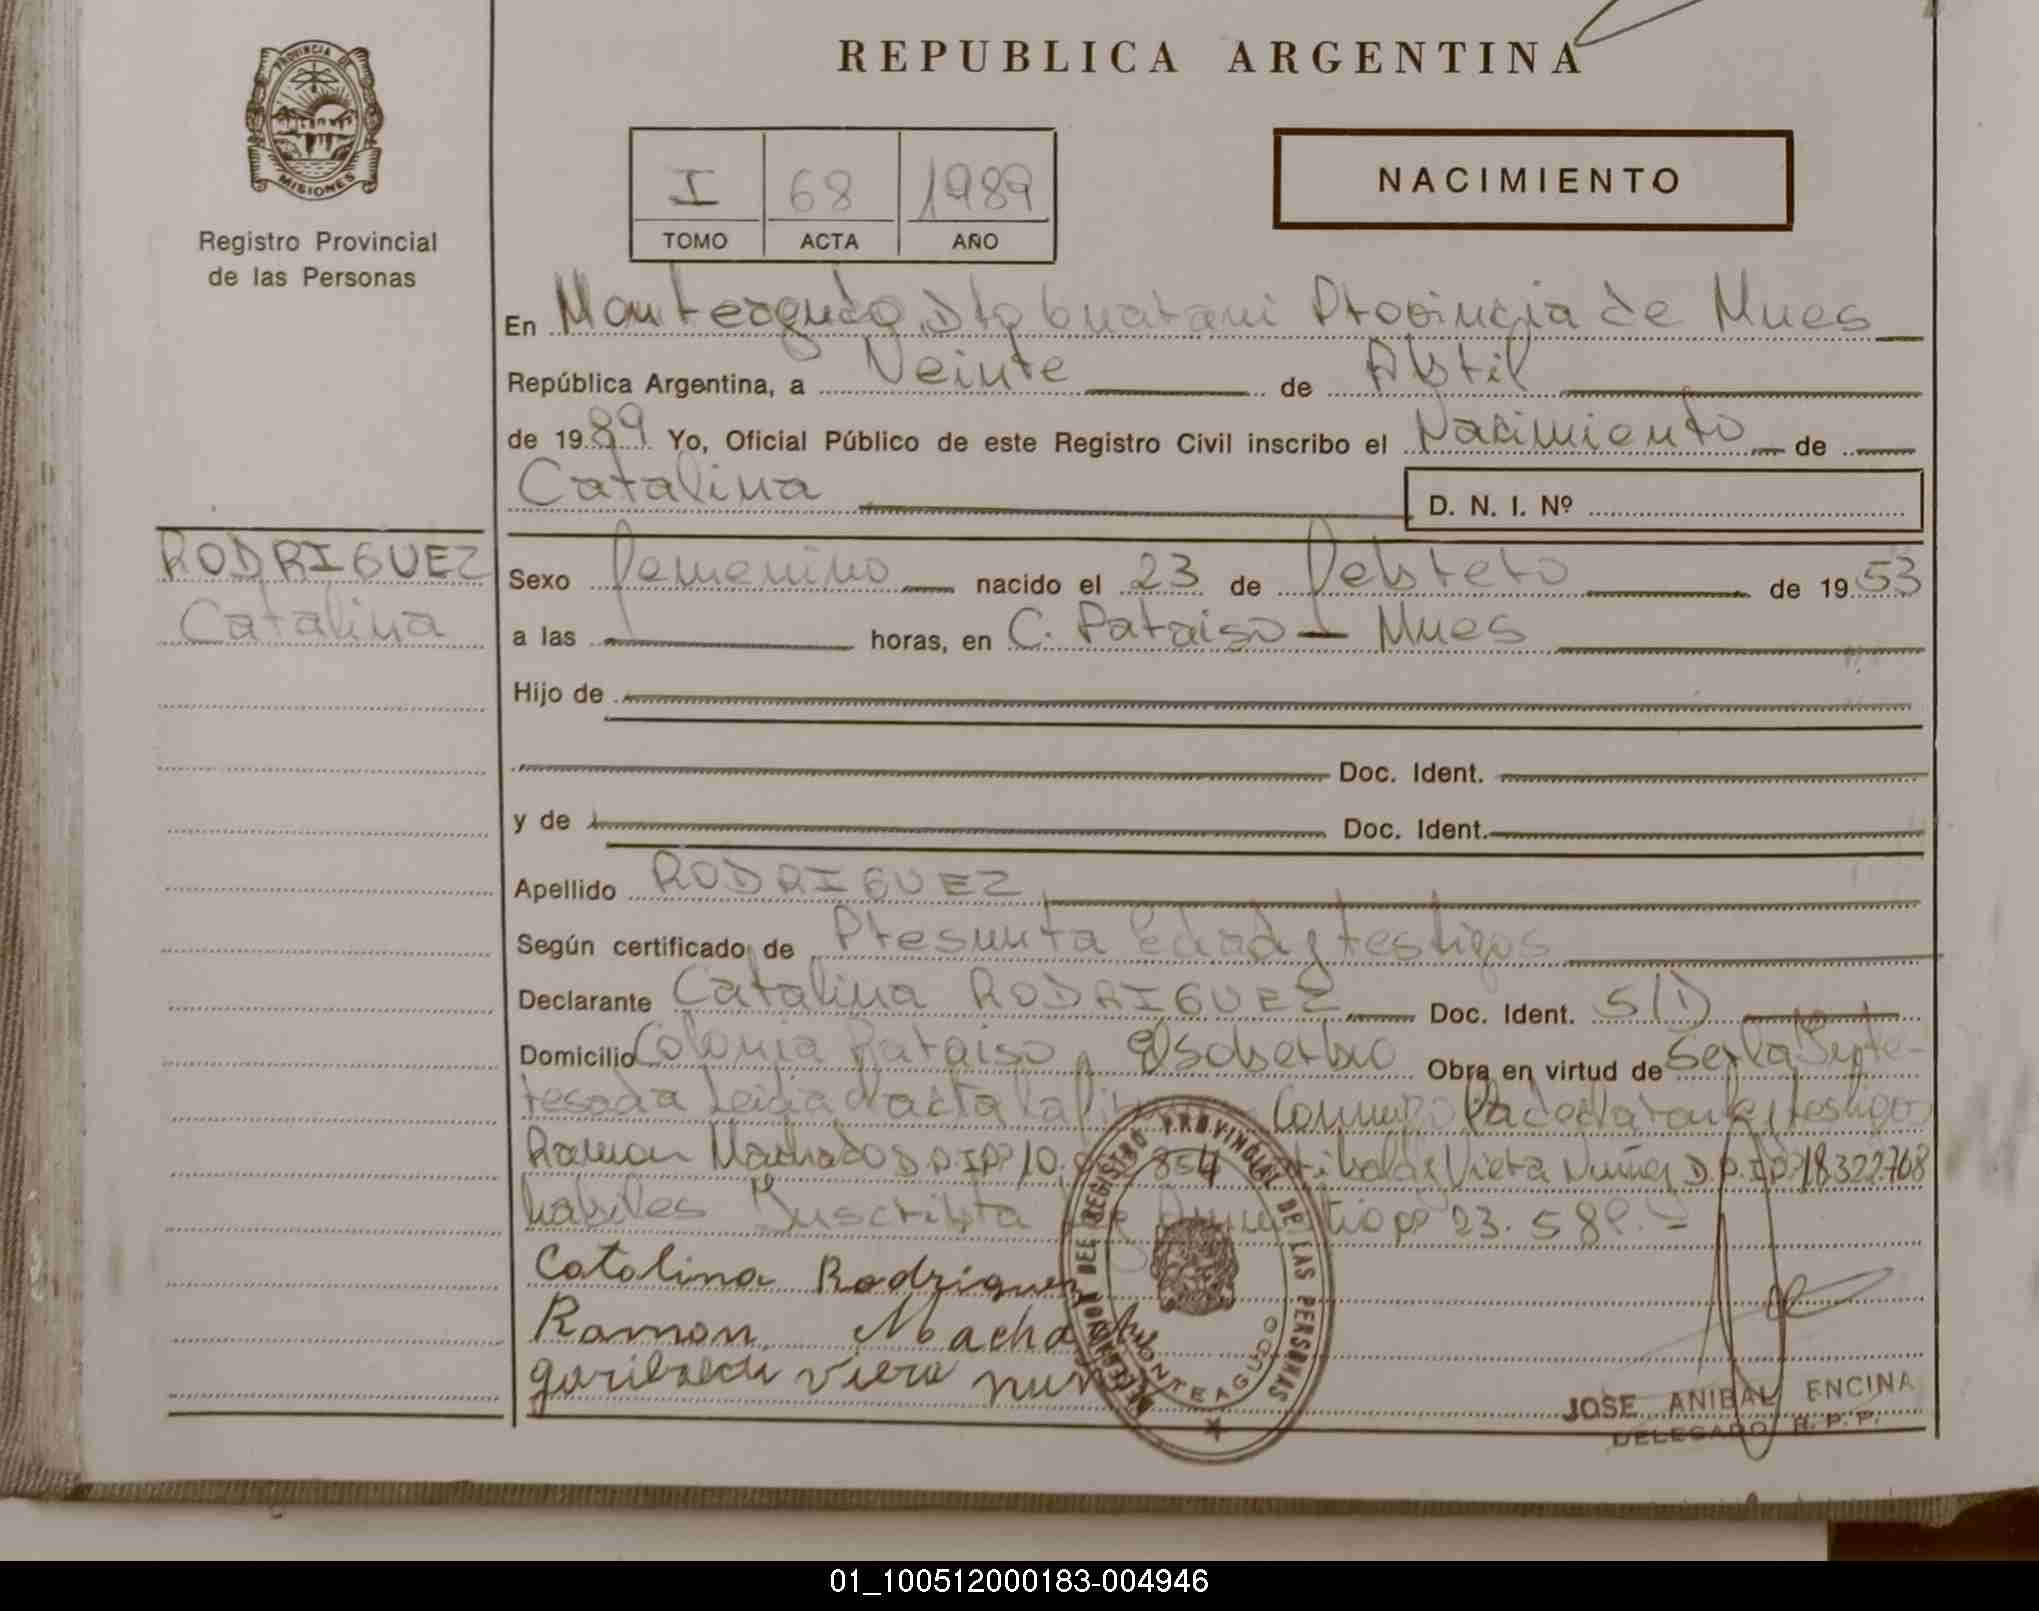 REPUBLICA ARGENTINA
PROVINCIA DE
MISIONES
Registro Provincial
de las Personas
I 68 1989
TOMO ACTA AÑO
NACIMIENTO
En Monteagudo Dto Guarani Provincia de Mnes
República Argentina, a Veinte de Abril
de 1989 Yo, Oficial Público de este Registro Civil inscribo el Nacimiento de
Catalina
D. N. I. Nº
RODRIGUEZ
Catalina
Sexo femenino nacido el 23 de febrero de 1953
a las horas, en C. Paraiso - Mnes
Hijo de
Doc. Ident.
y de Doc. Ident.
Apellido RODRIGUEZ
Según certificado de Presunta Edad y testigos
Declarante Catalina RODRIGUEZ Doc. Ident. S/D
Domicilio Colonia Paraiso El Soberbio Obra en virtud de Ser la Inte-
resada Leida el acta la conmigo la declarante y testigos
Ramon Machado D.N.I.Nº 10. 854 Garibaldi Viera Nuñez D.N.I.Nº 18322768
habiles Inscripta 23.589.-
Catalina Rodriguez
Ramon Macha
garibaldi viera nun
REGISTRO PROVINCIAL DE LAS PERSONAS
MONTEAGUDO
JOSE ANIBAL ENCINA
DELEGADO R. P. P.
01_100512000183-004946